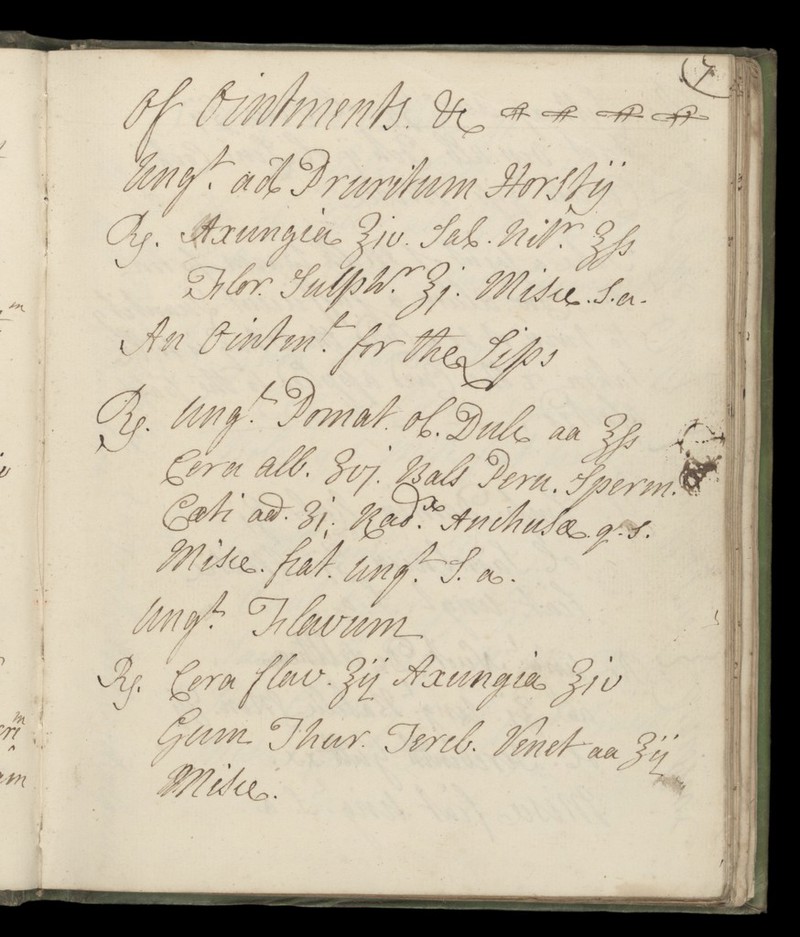 7
Of Ointments. &c
Ungt. ad Pruritum Horstij
Rx. Axungia ℥iv. Sal. Nitr. ℥ſs
Flor. Sulphr. ℥j. Misce. S.a.
An Ointmt. for the Lips
Rx. Ungt. Pomat. ol. Dulc aa ℥ſs
Cera alb. ʒvj. Bals Peru. Sperm.
Cæti aa. ʒi. Radx. Anchusæ q.s.
Misce. fiat. ungt. S. a.
Ungt. Flavum
Rx. Cera flav. ℥ij Axungia ℥iv
Gum Thur. Tereb. Venet aa ℥ij
Misce.